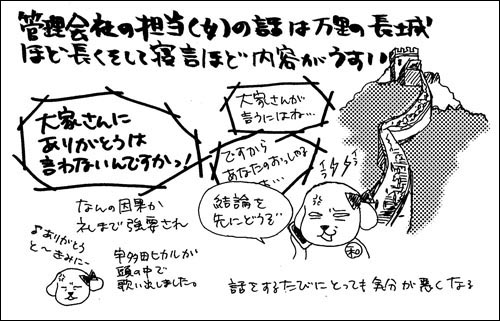 管理会社の担当(女)の話は万里の長城
ほど長くそして寝言ほど内容がうすい
大家さんが
言うにはね…
大家さんに
ありがとうは
言わないんですかっ!
ですから
あなたのおっしゃる
イライラ
結論を
先にどうぞ
なんの因果か
礼まで強要され
♪ありがとう
と〜きみに〜
宇多田ヒカルが
頭の中で
歌い出しました。
和
話をするたびにとっても気分が悪くなる